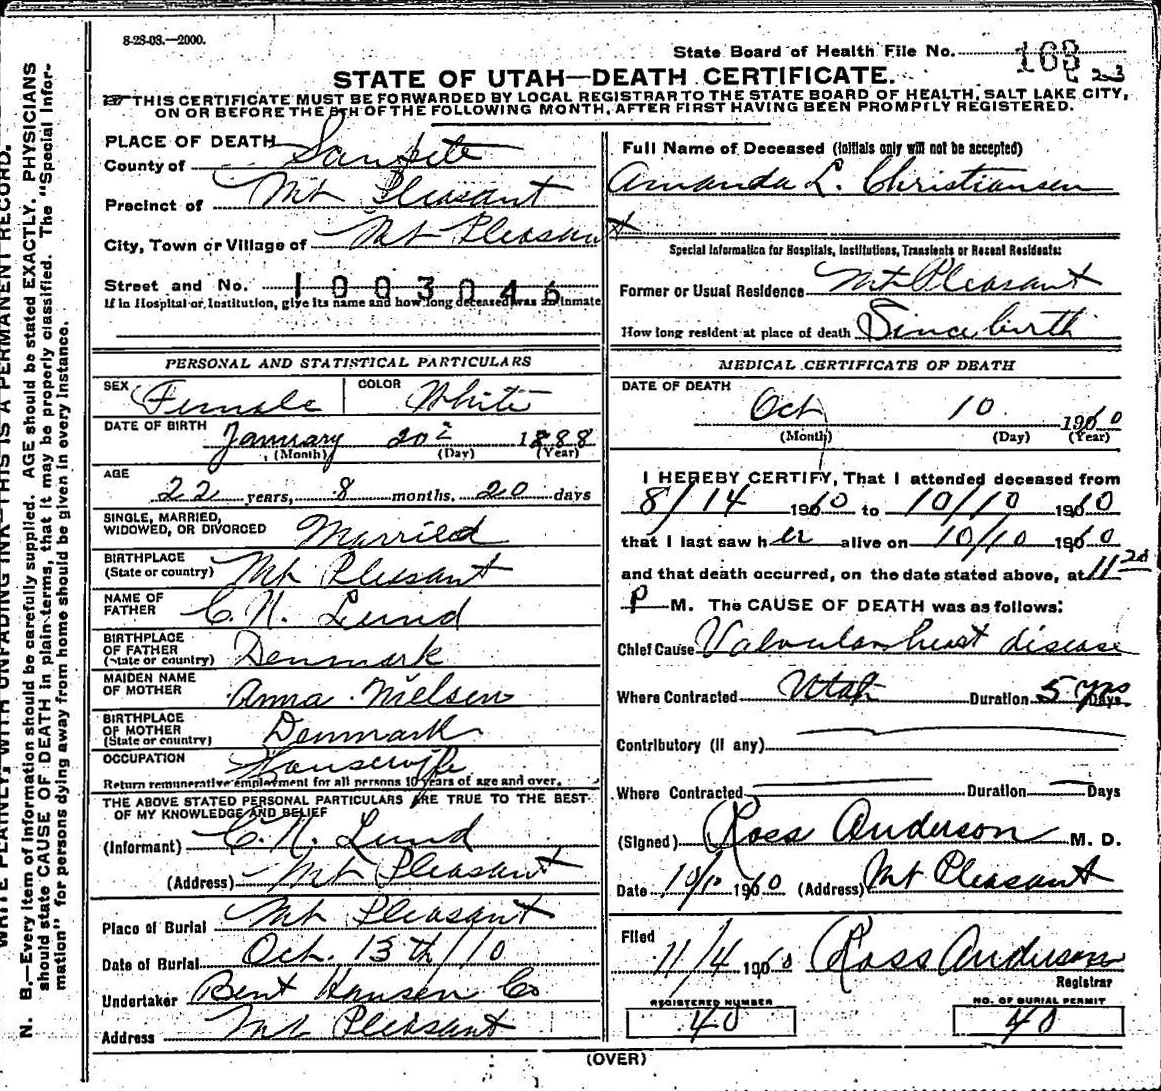 8-28-03.—2000.
State Board of Health File No. 163
C 23
STATE OF UTAH—DEATH CERTIFICATE.
☞THIS CERTIFICATE MUST BE FORWARDED BY LOCAL REGISTRAR TO THE STATE BOARD OF HEALTH, SALT LAKE CITY,
ON OR BEFORE THE 5TH OF THE FOLLOWING MONTH, AFTER FIRST HAVING BEEN PROMPTLY REGISTERED.
WRITE PLAINLY, WITH UNFADING INK—THIS IS A PERMANENT RECORD.
N. B.—Every item of information should be carefully supplied. AGE should be stated EXACTLY. PHYSICIANS
should state CAUSE OF DEATH in plain terms, that it may be properly classified. The "Special Infor-
mation" for persons dying away from home should be given in every instance.
PLACE OF DEATH
County of Sanpete
Precinct of Mt Pleasant
City, Town or Village of Mt Pleasant
Street and No. 1003046
If in Hospital or Institution, give its name and how long deceased was an inmate
PERSONAL AND STATISTICAL PARTICULARS
SEX Female COLOR White
DATE OF BIRTH January 20 1888
(Month) (Day) (Year)
AGE
22 years, 8 months, 20 days
SINGLE, MARRIED,
WIDOWED, OR DIVORCED Married
BIRTHPLACE
(State or country) Mt Pleasant
NAME OF
FATHER C. N. Lund
BIRTHPLACE
OF FATHER
(State or country) Denmark
MAIDEN NAME
OF MOTHER Anna Nielsen
BIRTHPLACE
OF MOTHER
(State or country) Denmark
OCCUPATION Housewife
Return remunerative employment for all persons 10 years of age and over.
THE ABOVE STATED PERSONAL PARTICULARS ARE TRUE TO THE BEST
OF MY KNOWLEDGE AND BELIEF
(Informant) C. N. Lund
(Address) Mt Pleasant
Place of Burial Mt Pleasant
Date of Burial Oct. 13th/10
Undertaker Bent Hansen Co
Address Mt Pleasant
Full Name of Deceased (Initials only will not be accepted)
Amanda L. Christiansen
Special Information for Hospitals, Institutions, Transients or Recent Residents:
Former or Usual Residence Mt Pleasant
How long resident at place of death Since birth
MEDICAL CERTIFICATE OF DEATH
DATE OF DEATH
Oct 10 1910
(Month) (Day) (Year)
I HEREBY CERTIFY, That I attended deceased from
8/14 1910 to 10/10 1910
that I last saw her alive on 10/10 1910
and that death occurred, on the date stated above, at 11 20
P M. The CAUSE OF DEATH was as follows:
Chief Cause Valvular heart disease
Where Contracted Utah Duration 5 yrs Days
Contributory (if any)
Where Contracted Duration Days
(Signed) Ross Anderson M. D.
Date 10/10 1910 (Address) Mt Pleasant
Filed
11/4 1910 Ross Anderson
Registrar
REGISTERED NUMBER
40
NO. OF BURIAL PERMIT
40
(OVER)